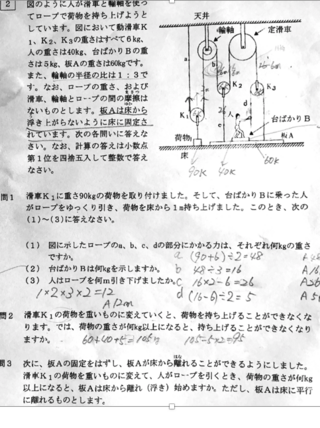 2
図のように人が滑車と輪軸を使っ
てロープで荷物を持ち上げようと
しています。図において動滑車K
1、K2、K3の重さはすべて6kg、
人の重さは40kg、台ばかりBの重
さは5kg、板Aの重さは60kgです。
また、輪軸の半径の比は1：3で
す。なお、ロープの重さ、および
滑車、輪軸とロープの間の摩擦は
ないものとします。板Aは床から
浮き上がらないように床に固定さ
れています。次の各問いに答えな
さい。なお、計算の答えは小数点
第1位を四捨五入して整数で答え
なさい。
天井
輪軸
定滑車
a
b
K3
K2
d
K1
人
台ばかりB
荷物
板A
床
90K
40K
60K
問1 滑車K1に重さ90kgの荷物を取り付けました。そして、台ばかりBに乗った人
がロープをゆっくり引き、荷物を床から1m持ち上げました。このとき、次の
(1)～(3)に答えなさい。
(1) 図に示したロープのa、b、c、dの部分にかかる力は、それぞれ何kgの重さ
ですか。
a (90+6)÷2=48
(2) 台ばかりBは何kgを示しますか。
b 48÷3=16
(3) 人はロープを何m引き下げましたか。
c 16×2-6=26
1×2×3×2=12
A12m
d (16-6)÷2=5
問2 滑車K1の荷物を重いものに変えていくと、荷物を持ち上げることができなくな
ります。では、荷物の重さが何kg以上になると、持ち上げることができなくなりま
すか。
60+40+5=105
105-5×2=95
問3 次に、板Aの固定をはずし、板Aが床から離れることができるようにしました。
滑車K1の荷物を重いものに変えて、人がロープを引くとき、荷物の重さが何kg
以上になると、板Aは床から離れ（浮き）始めますか。ただし、板Aは床に平行
に離れるものとします。